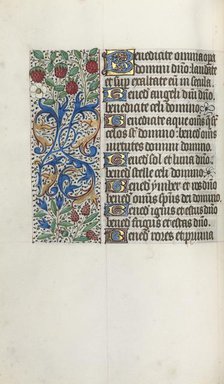 Benedicite omnia opa
domini dño: laudate
et supexaltate eũ in secula.
Bened angeli dñi dño:
benedicite celi domino.
Benedicite aque omẽs q̃ sup
celos st̃ domino: bened omẽs
uirtutes domini domino.
Bened sol et luna dño:
bened stelle celi domino.
Bened ymber et ros dño
bened omẽs sp̃us dei domino.
Bened ignis et estus dño
bened frigus et estas dño
Bened rores et pruina